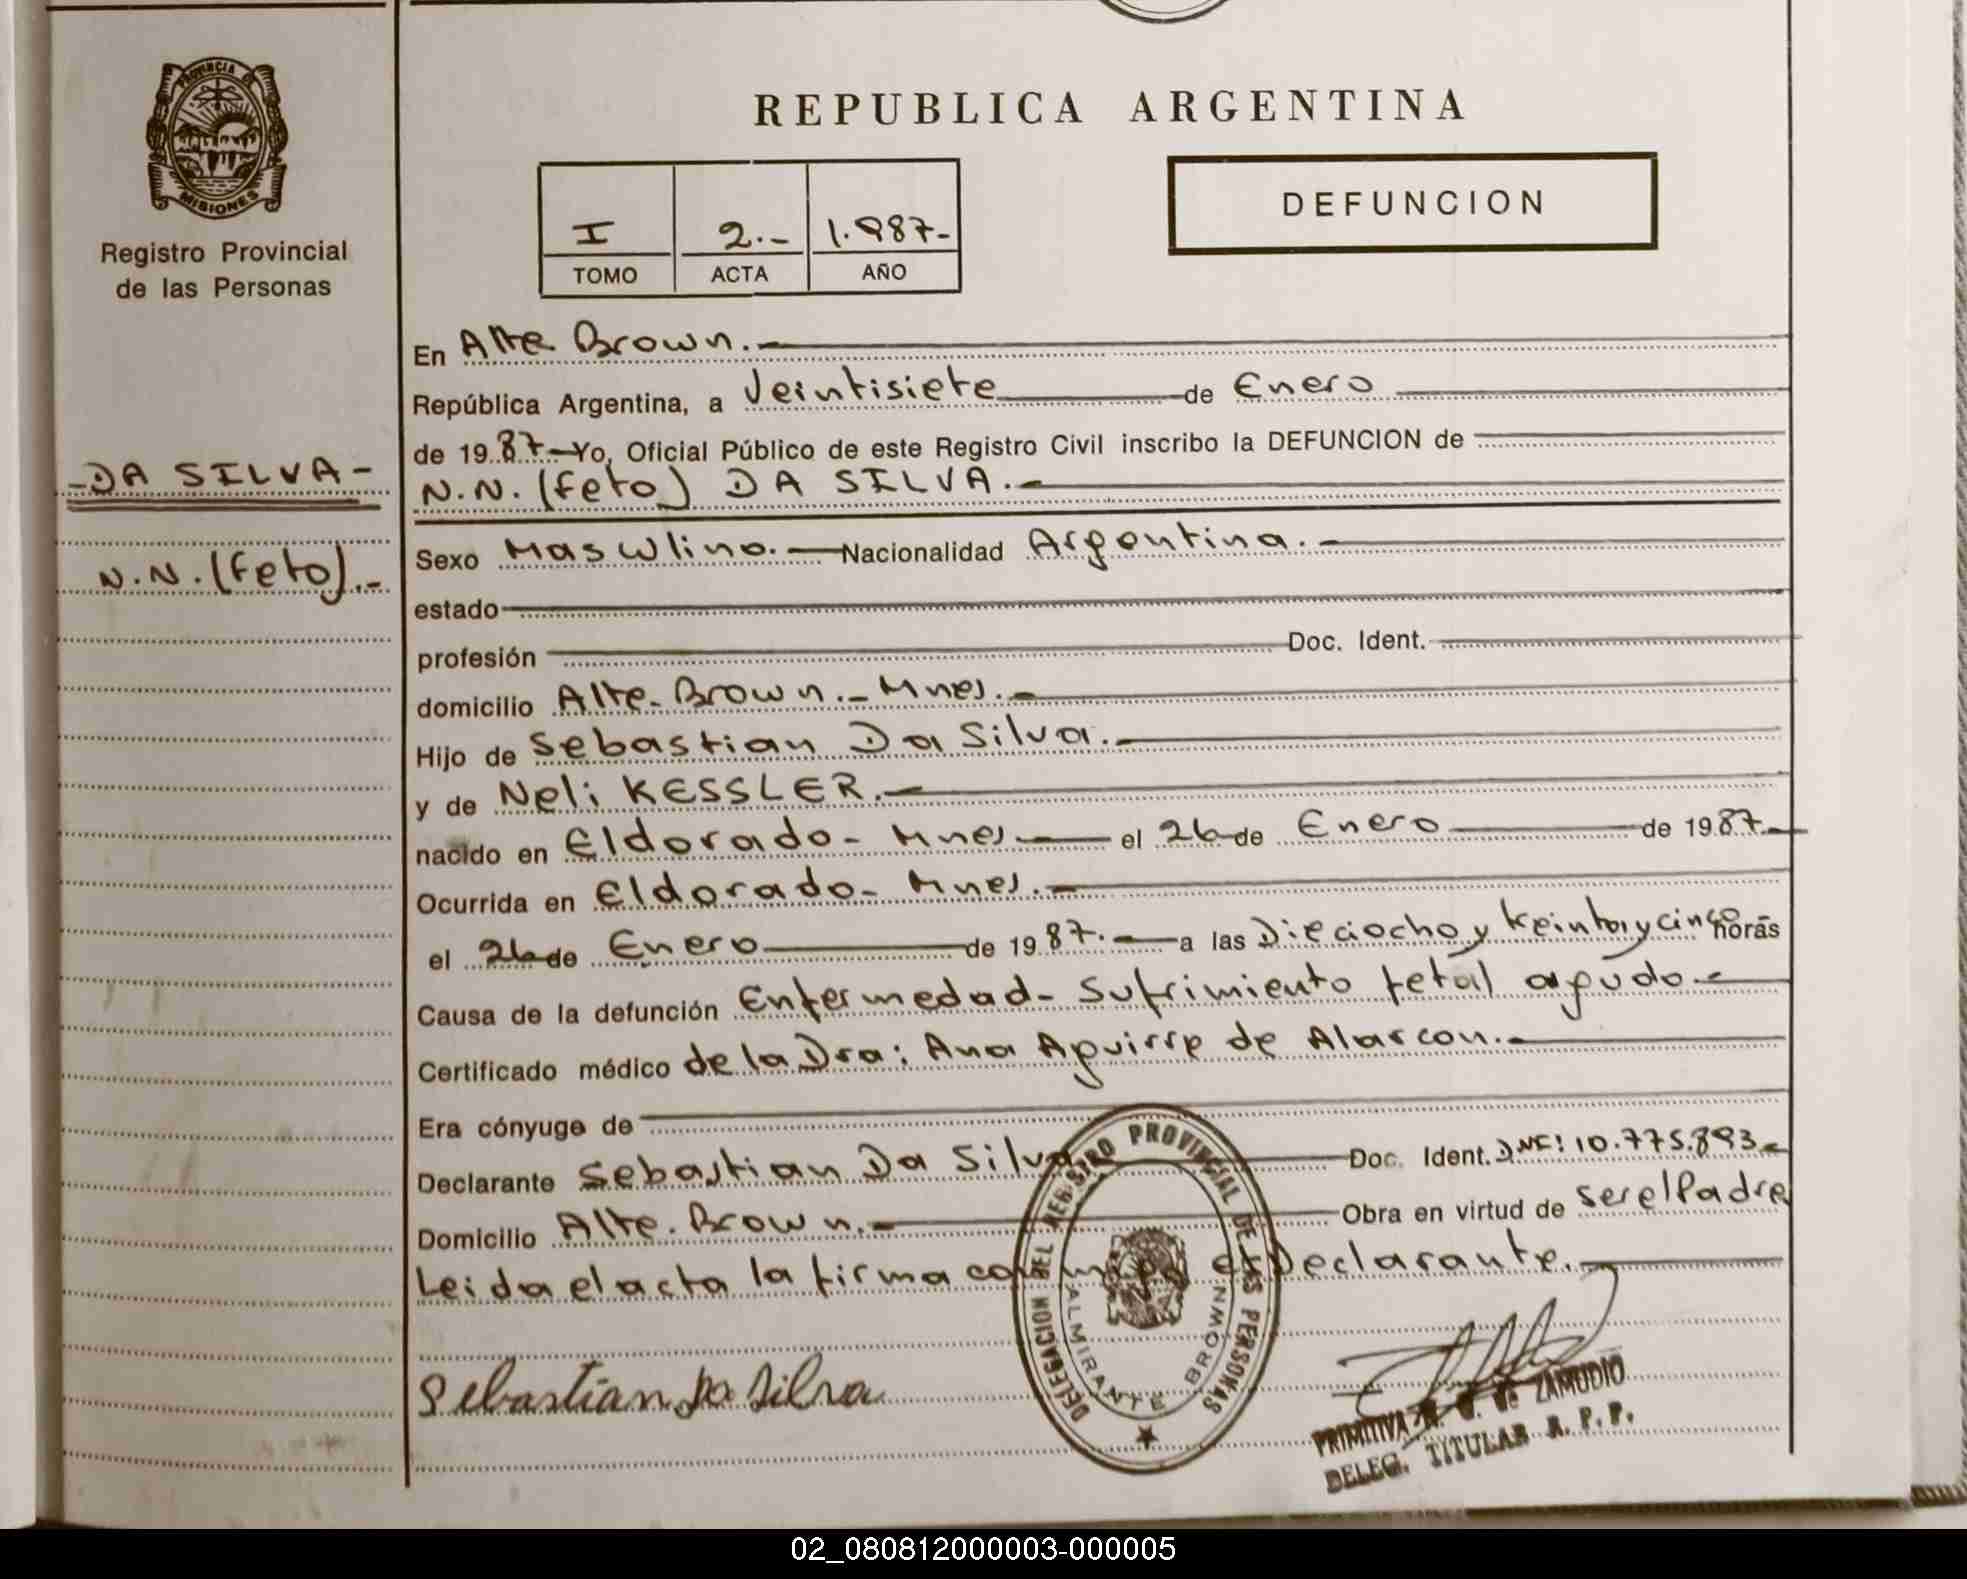 PROVINCIA DE
MISIONES
Registro Provincial
de las Personas
REPUBLICA ARGENTINA
I 2.- 1.987-
TOMO ACTA AÑO
DEFUNCION
En Alte Brown.-
República Argentina, a Veintisiete de Enero
de 1987- Yo, Oficial Público de este Registro Civil inscribo la DEFUNCION de
-DA SILVA-
N.N. (feto) DA SILVA.-
N.N. (feto).-
Sexo Masculino.- Nacionalidad Argentina.-
estado
profesión Doc. Ident.
domicilio Alte. Brown.- Mnes.-
Hijo de Sebastian Da Silva.-
y de Neli KESSLER.-
nacido en Eldorado- Mnes- el 26 de Enero de 1987.-
Ocurrida en Eldorado- Mnes.-
el 26 de Enero de 1987.- a las Dieciocho y treinta y cinco horas
Causa de la defunción Enfermedad- Sufrimiento fetal agudo.-
Certificado médico de la Dra: Ana Aguirre de Alarcon.-
Era cónyuge de
Declarante Sebastian Da Silva Doc. Ident. DNI: 10.775.893-
Domicilio Alte. Brown.- Obra en virtud de ser el Padre
Leida el acta la firma conmigo el Declarante.-
DELEGACION DEL REGISTRO PROVINCIAL DE LAS PERSONAS
ALMIRANTE BROWN
Sebastian Da Silva
PRIMITIVA de ZAMUDIO
DELEG. TITULAR R. P. P.
02_080812000003-000005